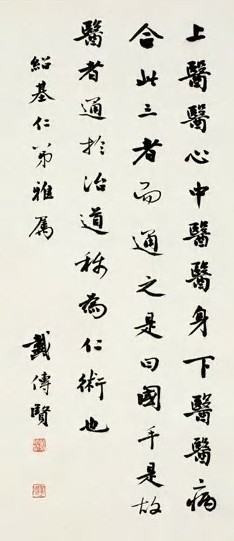 上醫醫心中醫醫身下醫醫病
合此三者而通之是曰國手是故
醫者通於治道稱為仁術也
紹基仁弟雅屬
戴傳賢